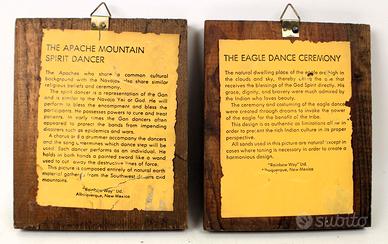 THE APACHE MOUNTAIN
SPIRIT DANCER
The Apaches who share a common cultural
background with the Navajos. He shares similar
religious beliefs and ceremony.
The spirit dancer is a representation of the Gan
and is similar to the Navajo Yei or God. He will
perform to bless the encampment and bless the
participants. He possesses powers to cure and treat
patients. In early times the Gan dancers often
appeared to protect the bands from impending
disasters such as epidemics and wars.
A chorus and a drummer accompany the dancers
and the song determines which dance step will be
used. Each dancer performs as an individual. He
holds in both hands a painted sword like a wand
used to cut away the destructive forces of
This picture is composed entirely of natural earth
material gathered from the Southwest rivers and
mountains.
"Rainbow Way" Ltd.
Albuquerque, New Mexico
THE EAGLE DANCE CEREMONY
The natural dwelling place of the eagle are high in
the clouds and sky, thereby being the one that
receives the blessings of the God Spirit directly. His
grace, dignity, and bravery were much admired by
the Indian who loves beauty.
The ceremony and costuming of the eagle dancer
were created through dreams to invoke the power
of the eagle for the benefit of the tribe.
This design is as authentic as limitations allow in
order to present the rich Indian culture in its proper
perspective.
All sands used in this picture are natural except in
cases where toning is necessary in order to create a
harmonious design.
"Rainbow Way" Ltd.
Albuquerque, New Mexico
subito